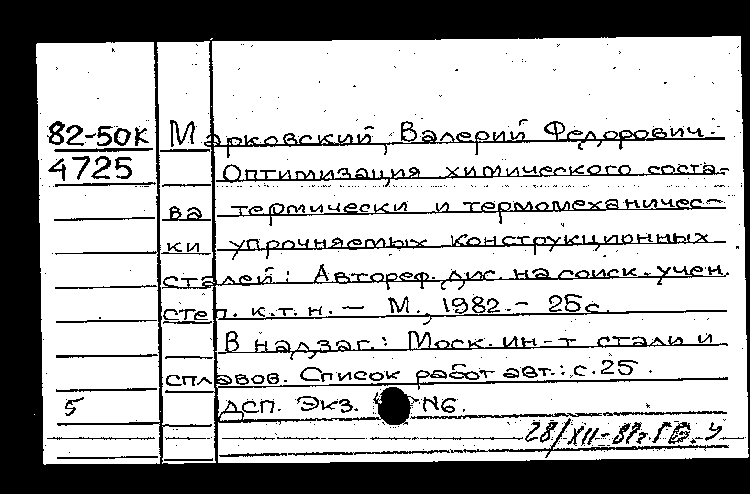 82-50К Марковский, Валерий Федорович.
4725 Оптимизация химического соста-
ва термически и термомеханичес-
ки упрочняемых конструкционных
сталей: Автореф. дис. на соиск. учен.
степ. к.т.н. - М., 1982. - 25с.
В надзаг.: Моск. ин-т стали и
сплавов. Список работ авт.: с.25.
5 ДСП. Экз. N6.
28/XII-82г.